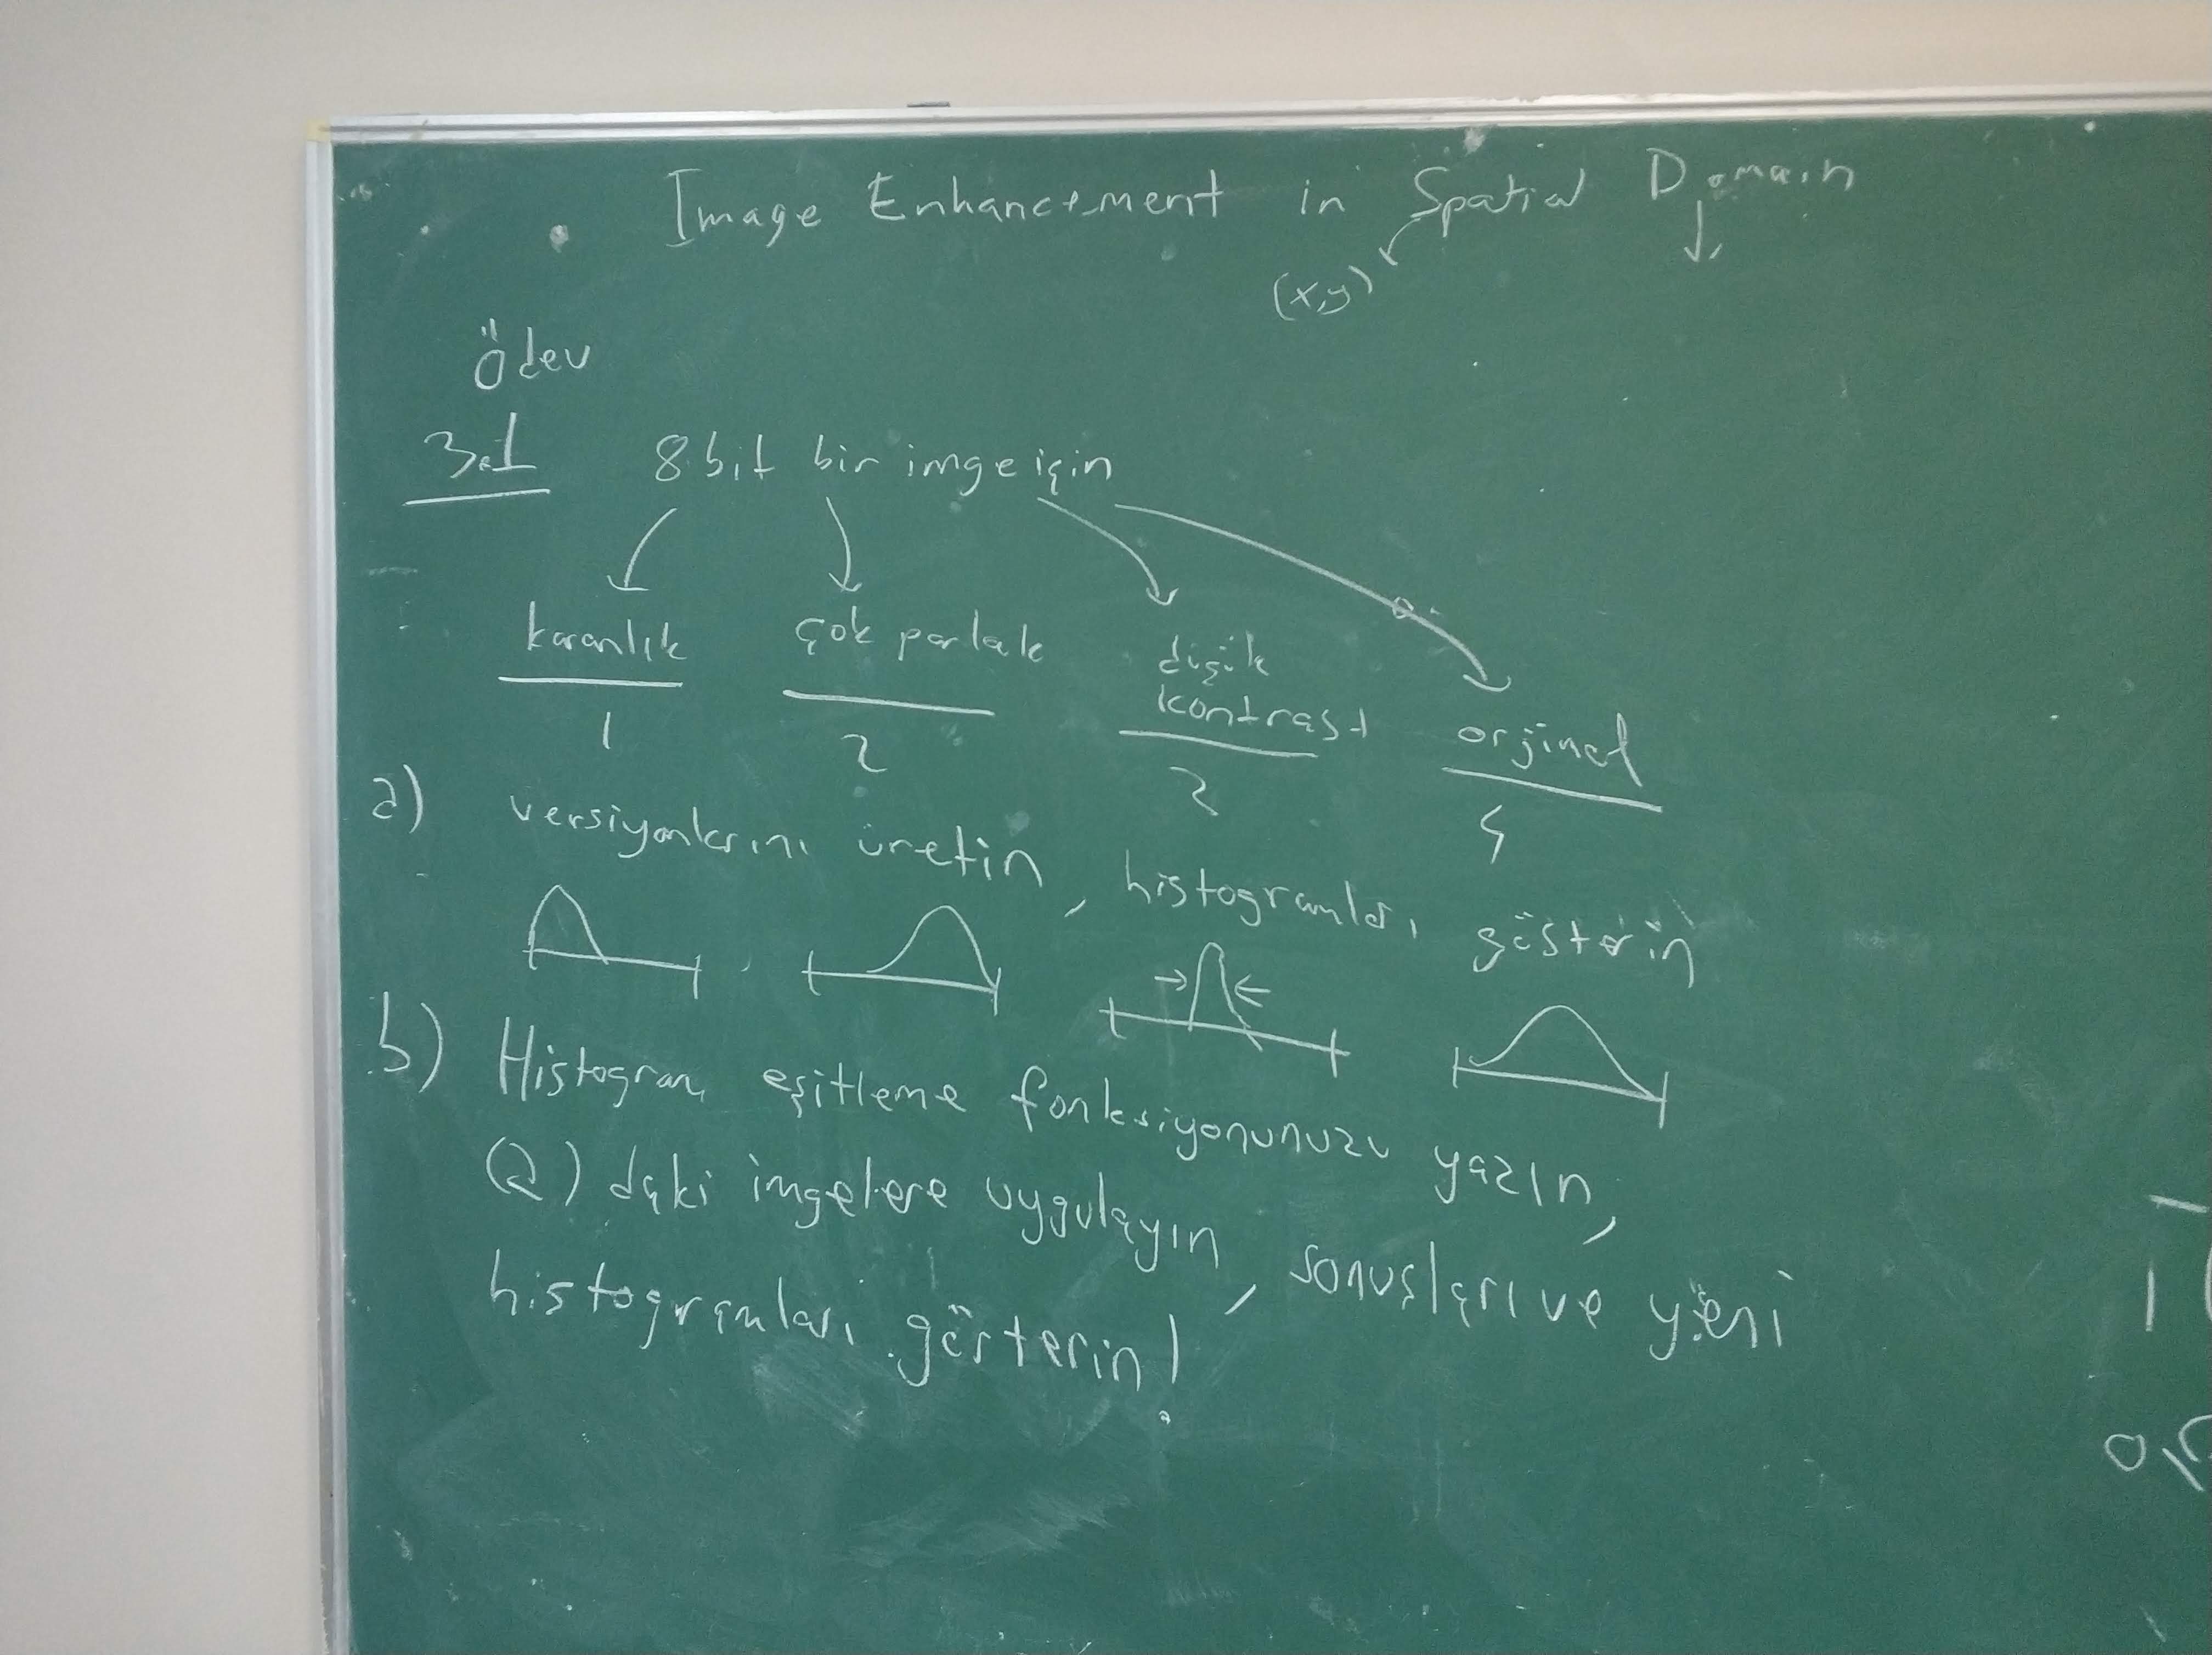 Image Enhancement in Spatial Domain
(x,y)
Ödev
3.1 8 bit bir imge için
karanlık çok parlak düşük kontrast orjinal
1 2 2 4
a) versiyonlarını üretin, histogramları gösterin
b) Histogram eşitleme fonksiyonunuzu yazın,
(a) daki imgelere uygulayın, sonuçları ve yeni
histogramları gösterin!